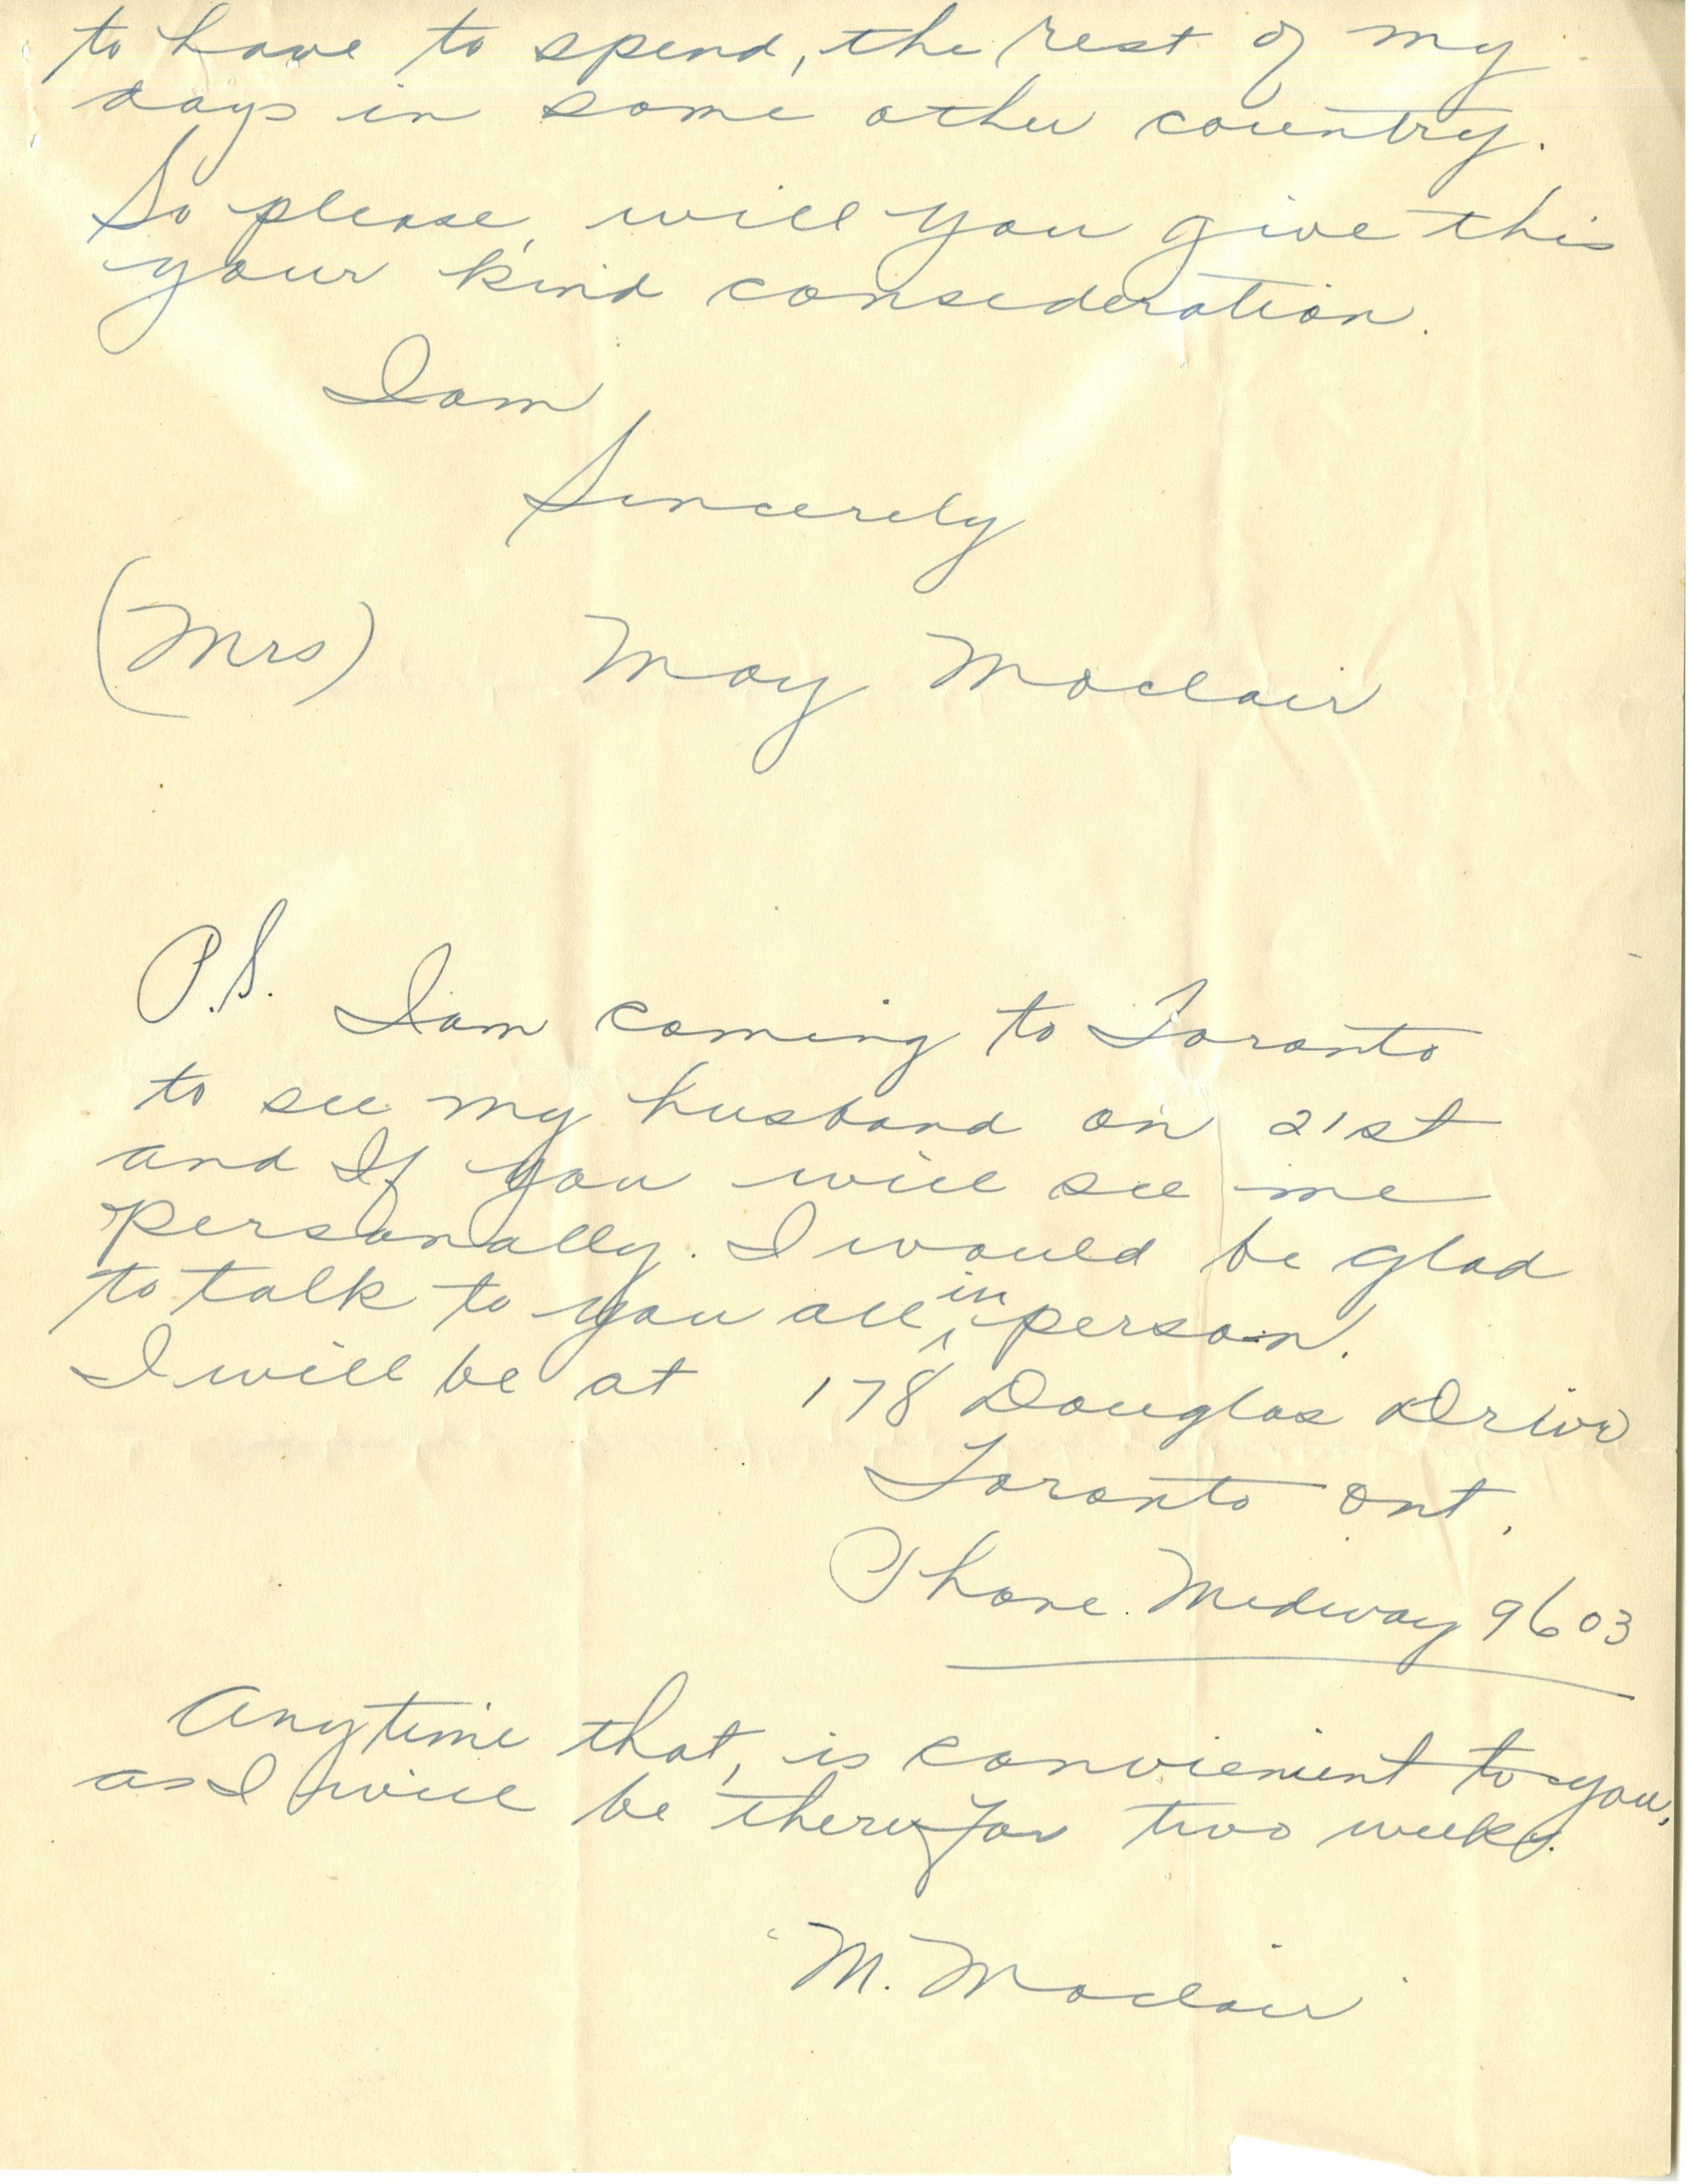 to have to spend, the rest of my
days in some other country.
So please, will you give this
your kind consideration.
I am
Sincerely
(Mrs) May Moclair
P.S. I am coming to Toronto
to see my husband on 21st
and If you will see me
personally. I would be glad
to talk to you all in person.
I will be at 178 Douglas Drive
Toronto Ont.
Phone. Medway 9603
Anytime that, is convienient to you,
as I will be there for two weeks.
M. Moclair